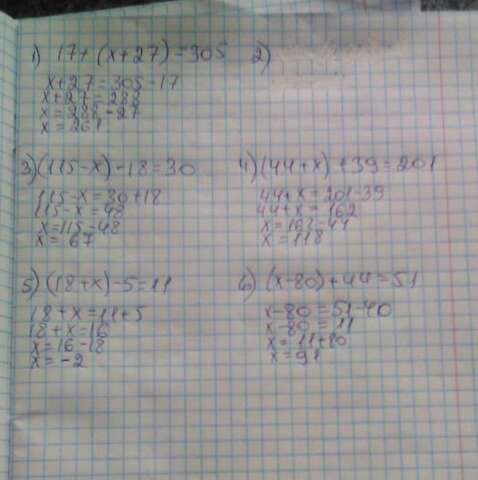 1) 17+(x+27)=305 2)
x+27=305-17
x+27=288
x=288-27
x=261
3)(115-x)-18=30 4)(44+x)+39=201
115-x=30+18 44+x=201-39
115-x=48 44+x=162
x=115-48 x=162-44
x=67 x=118
5)(18+x)-5=11 6)(x-80)+44=51
18+x=11+5 x-80=51-40
18+x=16 x-80=11
x=16-18 x=11+80
x=-2 x=91